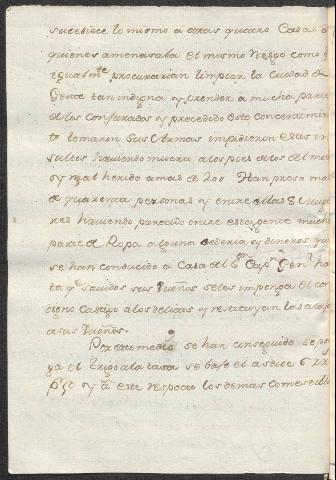 sucediese lo mismo a otras quatro Casas a
quienes amenasaba el mismo riesgo como
igualmte. procurarian limpiar la Ciudad de
Gente tan indigna y prender a mucha parte
de los Conjurados y procedido este
tomaron sus Armas impidieron estos in
sultos haviendo muerto a los
y mal herido a mas de 200 Han preso mas
de quarenta personas y entre ellas 8 muge
res haviendo parecido entre esta gente mucha
parte de Ropa alguna sederia y dineros que
se han conducido a Casa del Sor. Capn. Genl. has
ta qe. savidos sus Dueños se les imponga el con
digno Castigo a los delicas y restituyan las alajas
a sus Dueños.
Por este medio se han conseguido se pon
ga el trigo a la tasa se baje el aseite 6
y a este respecto los demas comestibles